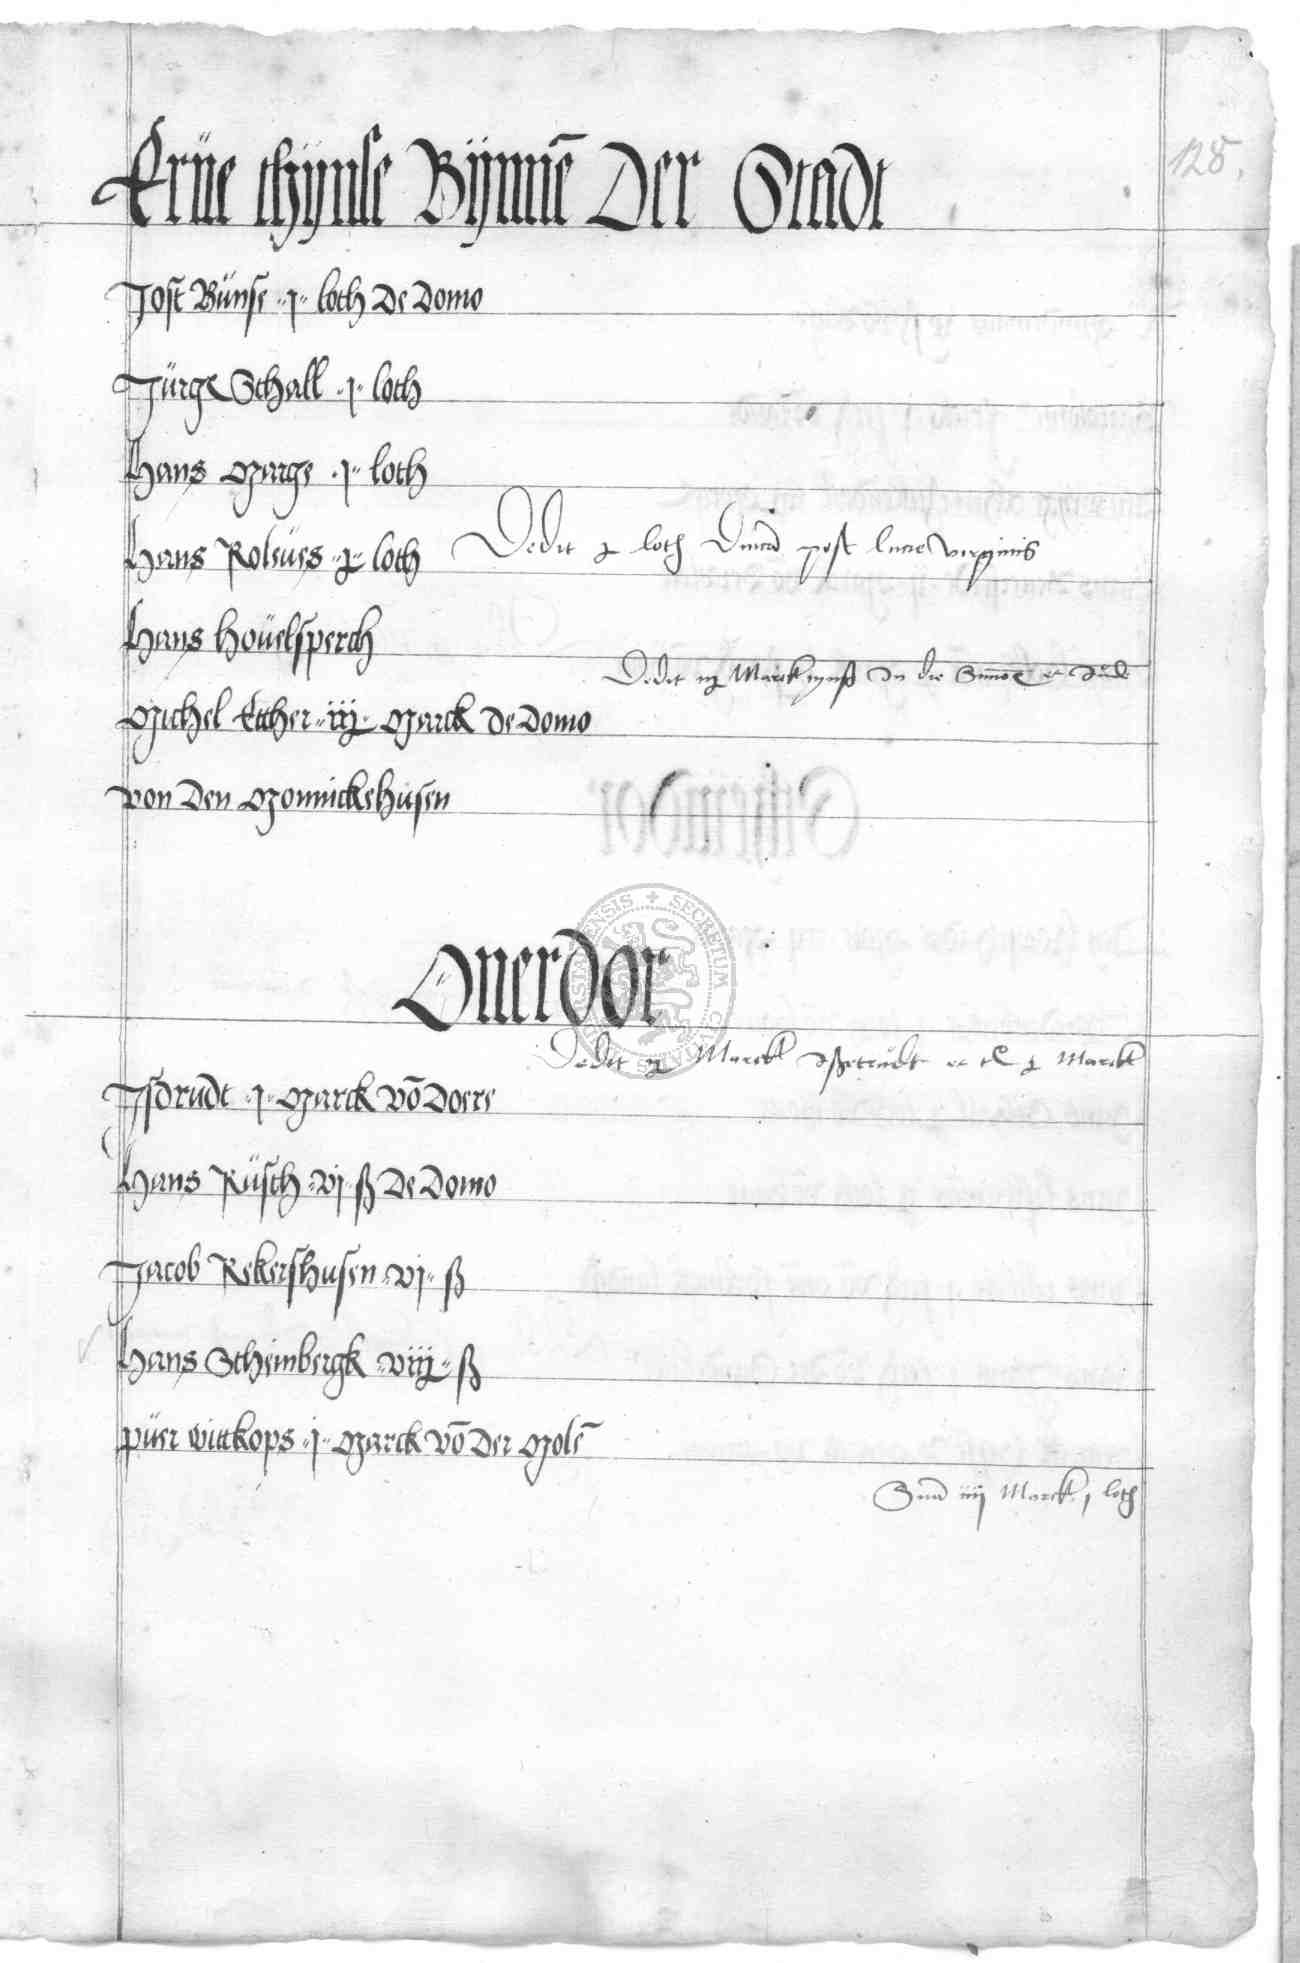 Erüe thÿnse Bÿnnē Der Stadt
128.
Jost Bünse j loth De Domo
Jürge Schall j loth
Hans Marge j loth
Hans Roleues loth Dedit loth post lucie virginis
Hans Höüelsperch
Dedit Marck In die et
Michel Etther iij Marck de Domo
von Den Monnickehüsen
Ouerdor
Dedit Marck et Marck
Jsdrudt j Marck vō Doere
Hans Rüsch vj ß De Domo
Jacob Rekershusen vj ß
Hans Scheinbergk viij ß
püer wittkops j Marck vō Der Molē
iiij Marck j loth
SECRETUM CIVITATIS